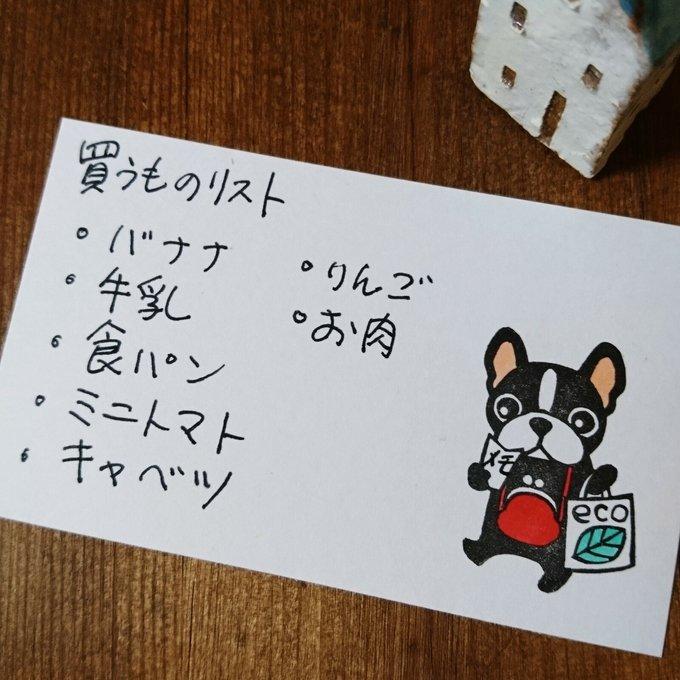 買うものリスト
・バナナ
・牛乳
・食パン
・ミニトマト
・キャベツ
・りんご
・お肉
メモ
eco